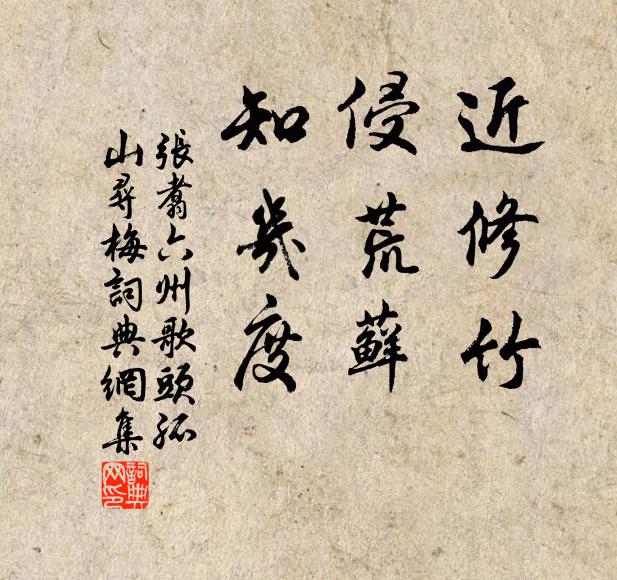 近修竹
侵荒蘚
知幾度
張翥六州歌頭孤
山尋梅詞典網集
詞典网印